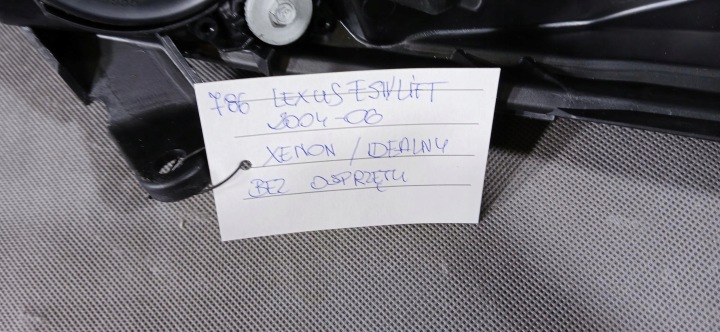 786 LEXUS ES IV LIFT
2004-06
XENON / IDEALNY
BEZ OSPRZĘTU